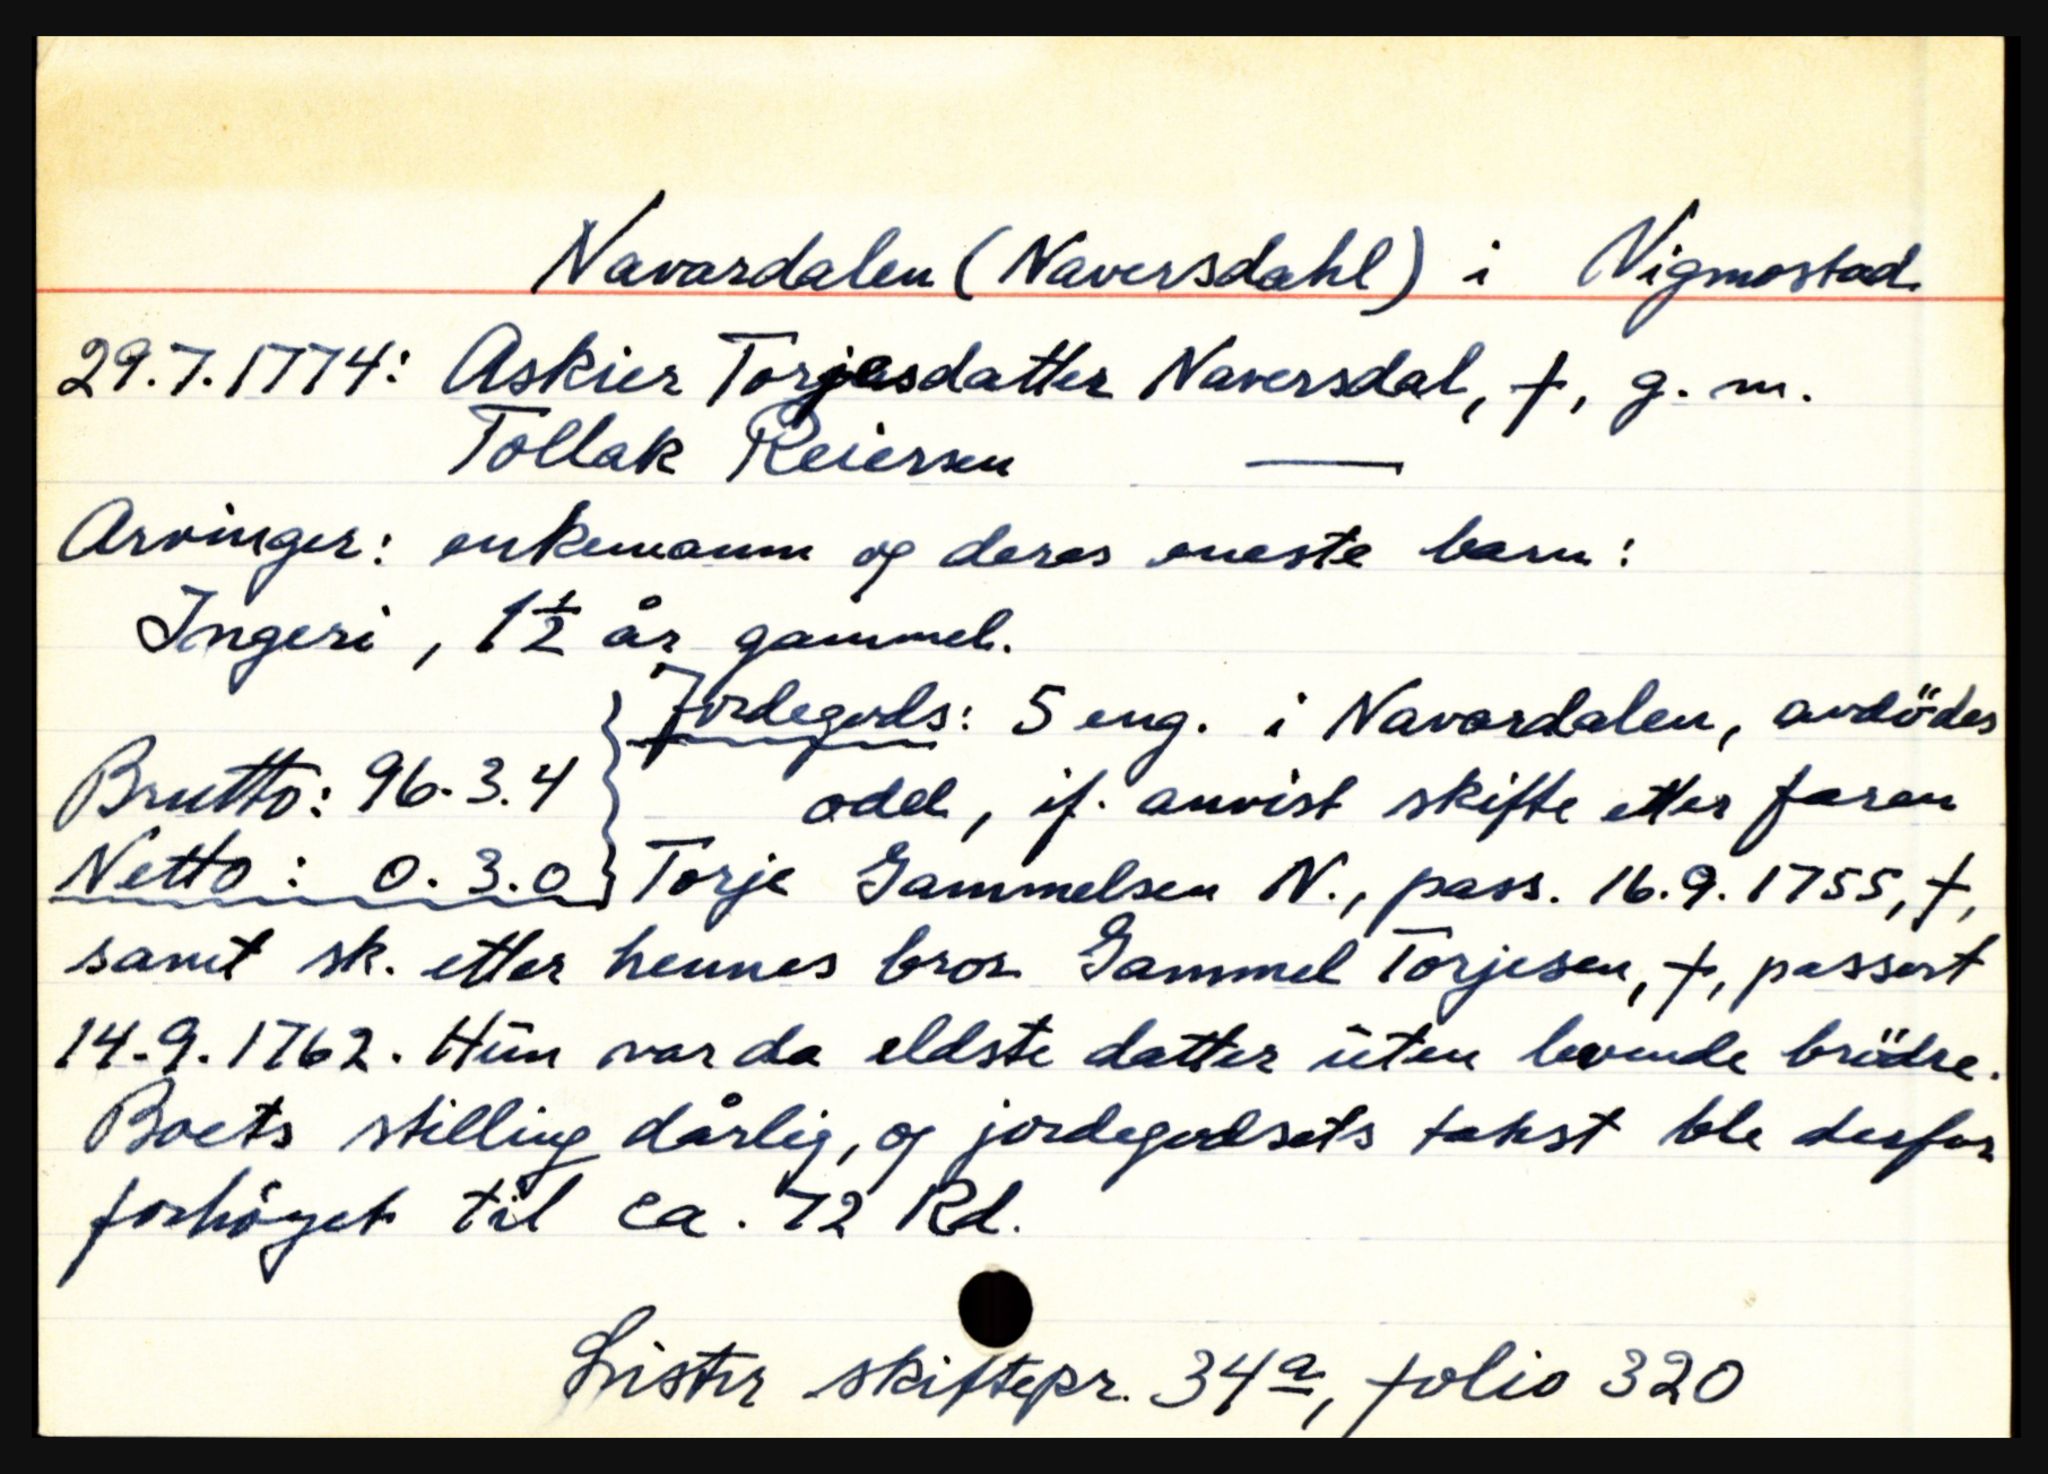 Navardalen (Naversdahl) i Vigmostad
29.7.1774: Askier Torjesdatter Naversdal, †, g. m.
Tollak Reiersen —
Arvinger: enkemann og deres eneste barn:
Ingeri, 1½ år gammel.
Jordegods: 5 eng. i Navardalen, avdødes
Brutto: 96.3.4 odel, if. anvist skifte etter faren
Netto: 0.3.0 Torje Gammelsen N., pass. 16.9.1755, †,
samt sk. etter hennes bror Gammel Torjesen, †, passert
14.9.1762. Hun var da eldste datter uten levende brödre.
Boets stilling dårlig, og jordegodsets takst ble derfor
forhöyet til ca. 72 Rd.
Lister skiftepr. 34a, folio 320